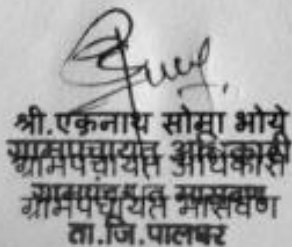 श्री.एकनाथ सोमा भोये
ग्रामपंचायत अधिकारी
ग्रामपंचायत मासवण
ता.जि.पालघर